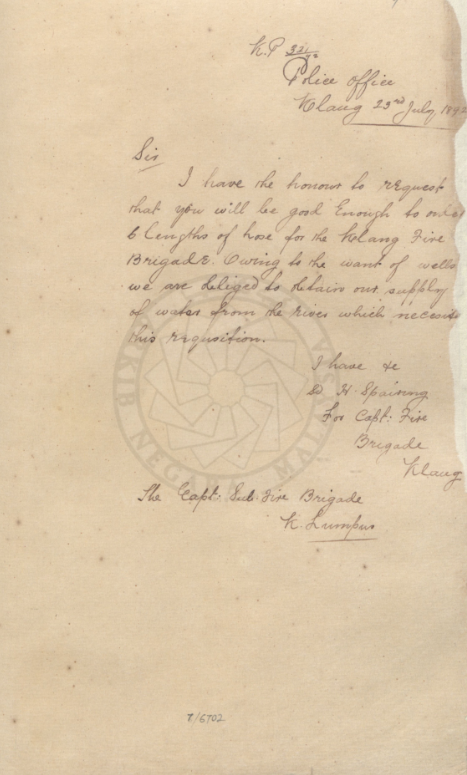 K.P 331/92
Police Office
Klang 23rd July 189
Sir
I have the honour to request
that you will be good Enough to orde
6 lengths of hose for the Klang Fire
Brigade. Owing to the want of wells
we are obliged to obtain our supply
of water from the river which necessi
this requisition.
I have &c
Sd H. Spairing
For Capt: Fire
Brigade
Klang
The Capt: Sub. Fire Brigade
K. Lumpur
ARKIB NEGARA MALAYSIA
7/6702